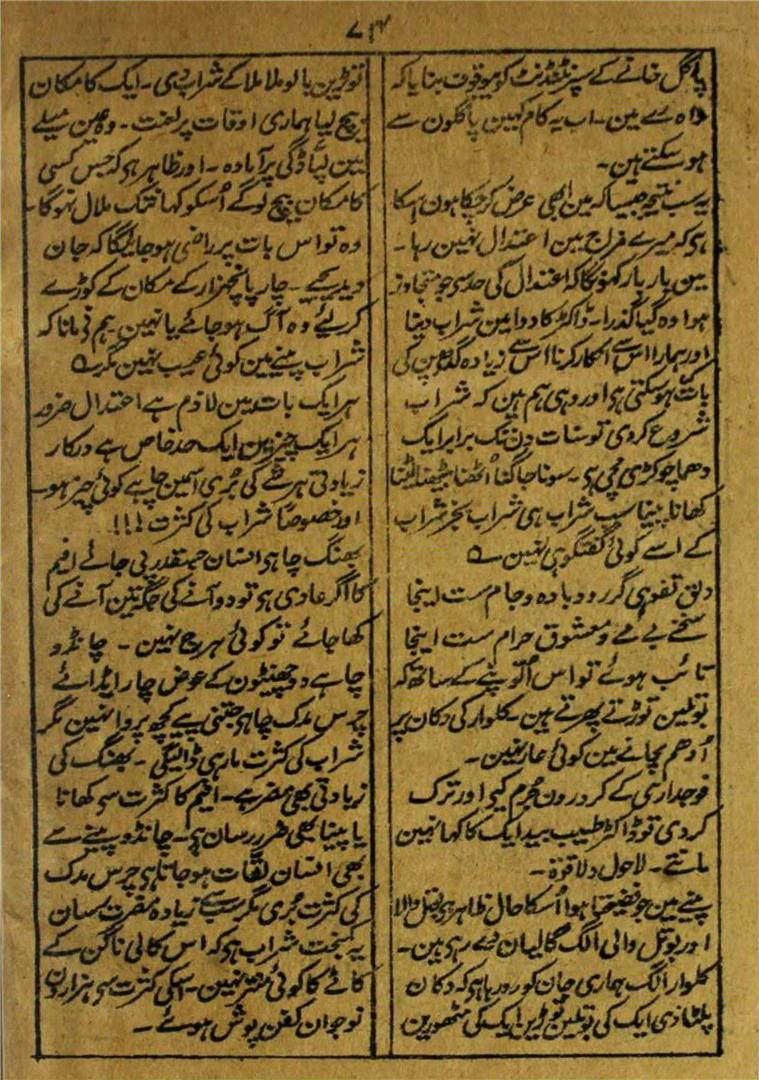 ۷۳
پاگل خانے کے سپرنٹنڈنٹ کو بیوقوف بنایا کہ
واہ سے مین۔ اب یہ کام کہین پاگلون سے
ہو سکتے ہین۔
یہ سب نتیجہ جیسا کہ مین ابھی عرض کر چکا ہون اسکا
ہی کہ میرے مزاج مین اعتدال نہین رہا۔
مین بار بار کہونگا کہ اعتدال کی حد سی جو متجاوز
ہوا وہ گیا گذرا۔ ڈاکٹر کا دوا مین شراب دینا
اور ہمارا اس سے انکار کرنا اس سے زیادہ گدھے پن کی
بات ہو سکتی ہی اور وہی ہم ہین کہ شراب
شروع کر دی تو سات دن تک برابر ایک
دھما چوکڑی مچی ہی۔ سونا جاگنا اُٹھنا بیٹھنا لیٹنا
کھانا پینا سب شراب ہی شراب بجز شراب
کے اسے کوئی گفتگو ہی نہین ؎
دلق تقوی گرو بادہ و جام ست اینجا
سخنے بے مے و معشوق حرام ست اینجا
تائب ہوئے تو اس اُتو پنے کے ساتھ کہ
بوتلین توڑتے پھرتے ہین۔ کلوار کی دکان پر
اُودھم مچانے مین کوئی عار نہین۔
فوجداری کے کردرون جُرم کیی اور ترک
کر دی تو ڈاکٹر طبیب بید ایک کا کہا نہین
مانتے۔ لاحول ولا قوۃ۔
پینے مین جو فضیحتا ہوا اُسکا حال ظاہر ہی بوتل والا
اور بوتل والی الگ گالیان دے رہی ہین۔
کلوار الگ ہماری جان کو رو رہا ہی کہ دکان
پلٹا دی ایک کی بوتلین توڑین ایک کی مٹھورین
توڑین بالو ملا ملا کے شراب دی۔ ایک کا مکان
بیچ لیا ہماری اوقات پر لعنت۔ وہ عین میلے
مین لپاڈگی پر آمادہ۔ اور ظاہر ہی کہ جس کسی
کا مکان بیچ لوگے اُسکو کہانتک ملال نہوگا۔
وہ تو اس بات پر راضی ہو جائیگا کہ جان
دیدیجیے۔ چار پانچہزار کے مکان کے کوڑے
کر لیے وہ آگ ہو جائے یا نہین۔ ہم نے مانا کہ
شراب پینے مین کوئی عیب نہین مگر ؎
ہر ایک بات مین لازم ہے اعتدال ضرور
ہر ایک چیز مین ایک حد خاص ہے درکار
زیادتی ہر شے کی بُری اسمین چاہے کوئی چیز ہو۔
اور خصوصاً شراب کی کثرت!!!
بھنگ چاہی انسان جسقدر پی جائے افیم
کا اگر عادی ہی تو دو آنے کی جگہ تین آنے کی
کھا جائے تو کوئی ہرج نہین۔ چانڈو
چاہے دو چھینٹون کے عوض چار اڑائے
چرس مدک چاہی جتنی پیے کچھ پروا نہین مگر
شراب کی کثرت مار ہی ڈالیگی۔ بھنگ کی
زیادتی بھی مضر ہے۔ افیم کا کثرت سی کھانا
یا پینا بھی ضرر رسان ہی۔ چانڈو پینے سے
بھی انسان لقّات ہو جاتا ہی چرس مدک
کی کثرت بُری مگر سب سے زیادہ مضرت رسان
یہ کمبخت شراب ہی کہ اس کالی ناگن کے
کاٹے کا کوئی منتر نہین۔ اسکی کثرت سی ہزارون
نوجوان کفن پوش ہوئے۔